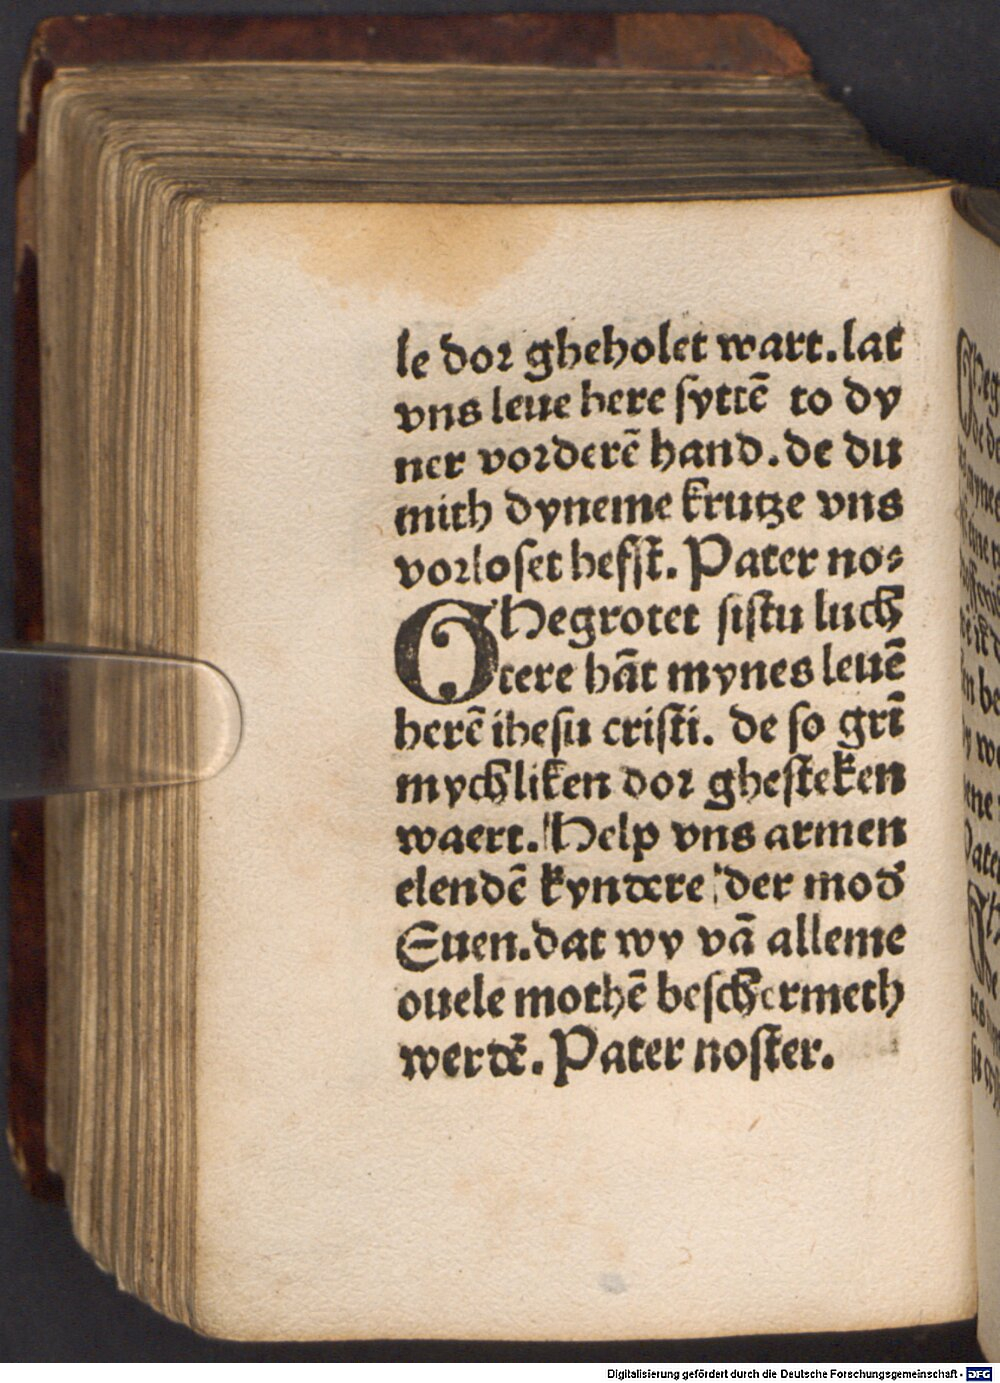 le dor gheholet wart. lat
vns leue here syttē to dy
ner vorderē hand. de du
mith dyneme krutze vns
vorloset hefst. Pater nos
Ghegrotet sistu luch
tere hāt mynes leuē
herē ihesu cristi. de so grī
mychliken dor ghesteken
waert. Help vns armen
elendē kyndere der mod
Euen. dat wy vā alleme
ouele mothē beschermeth
werdē. Pater noster.
Digitalisierung gefördert durch die Deutsche Forschungsgemeinschaft - DFG